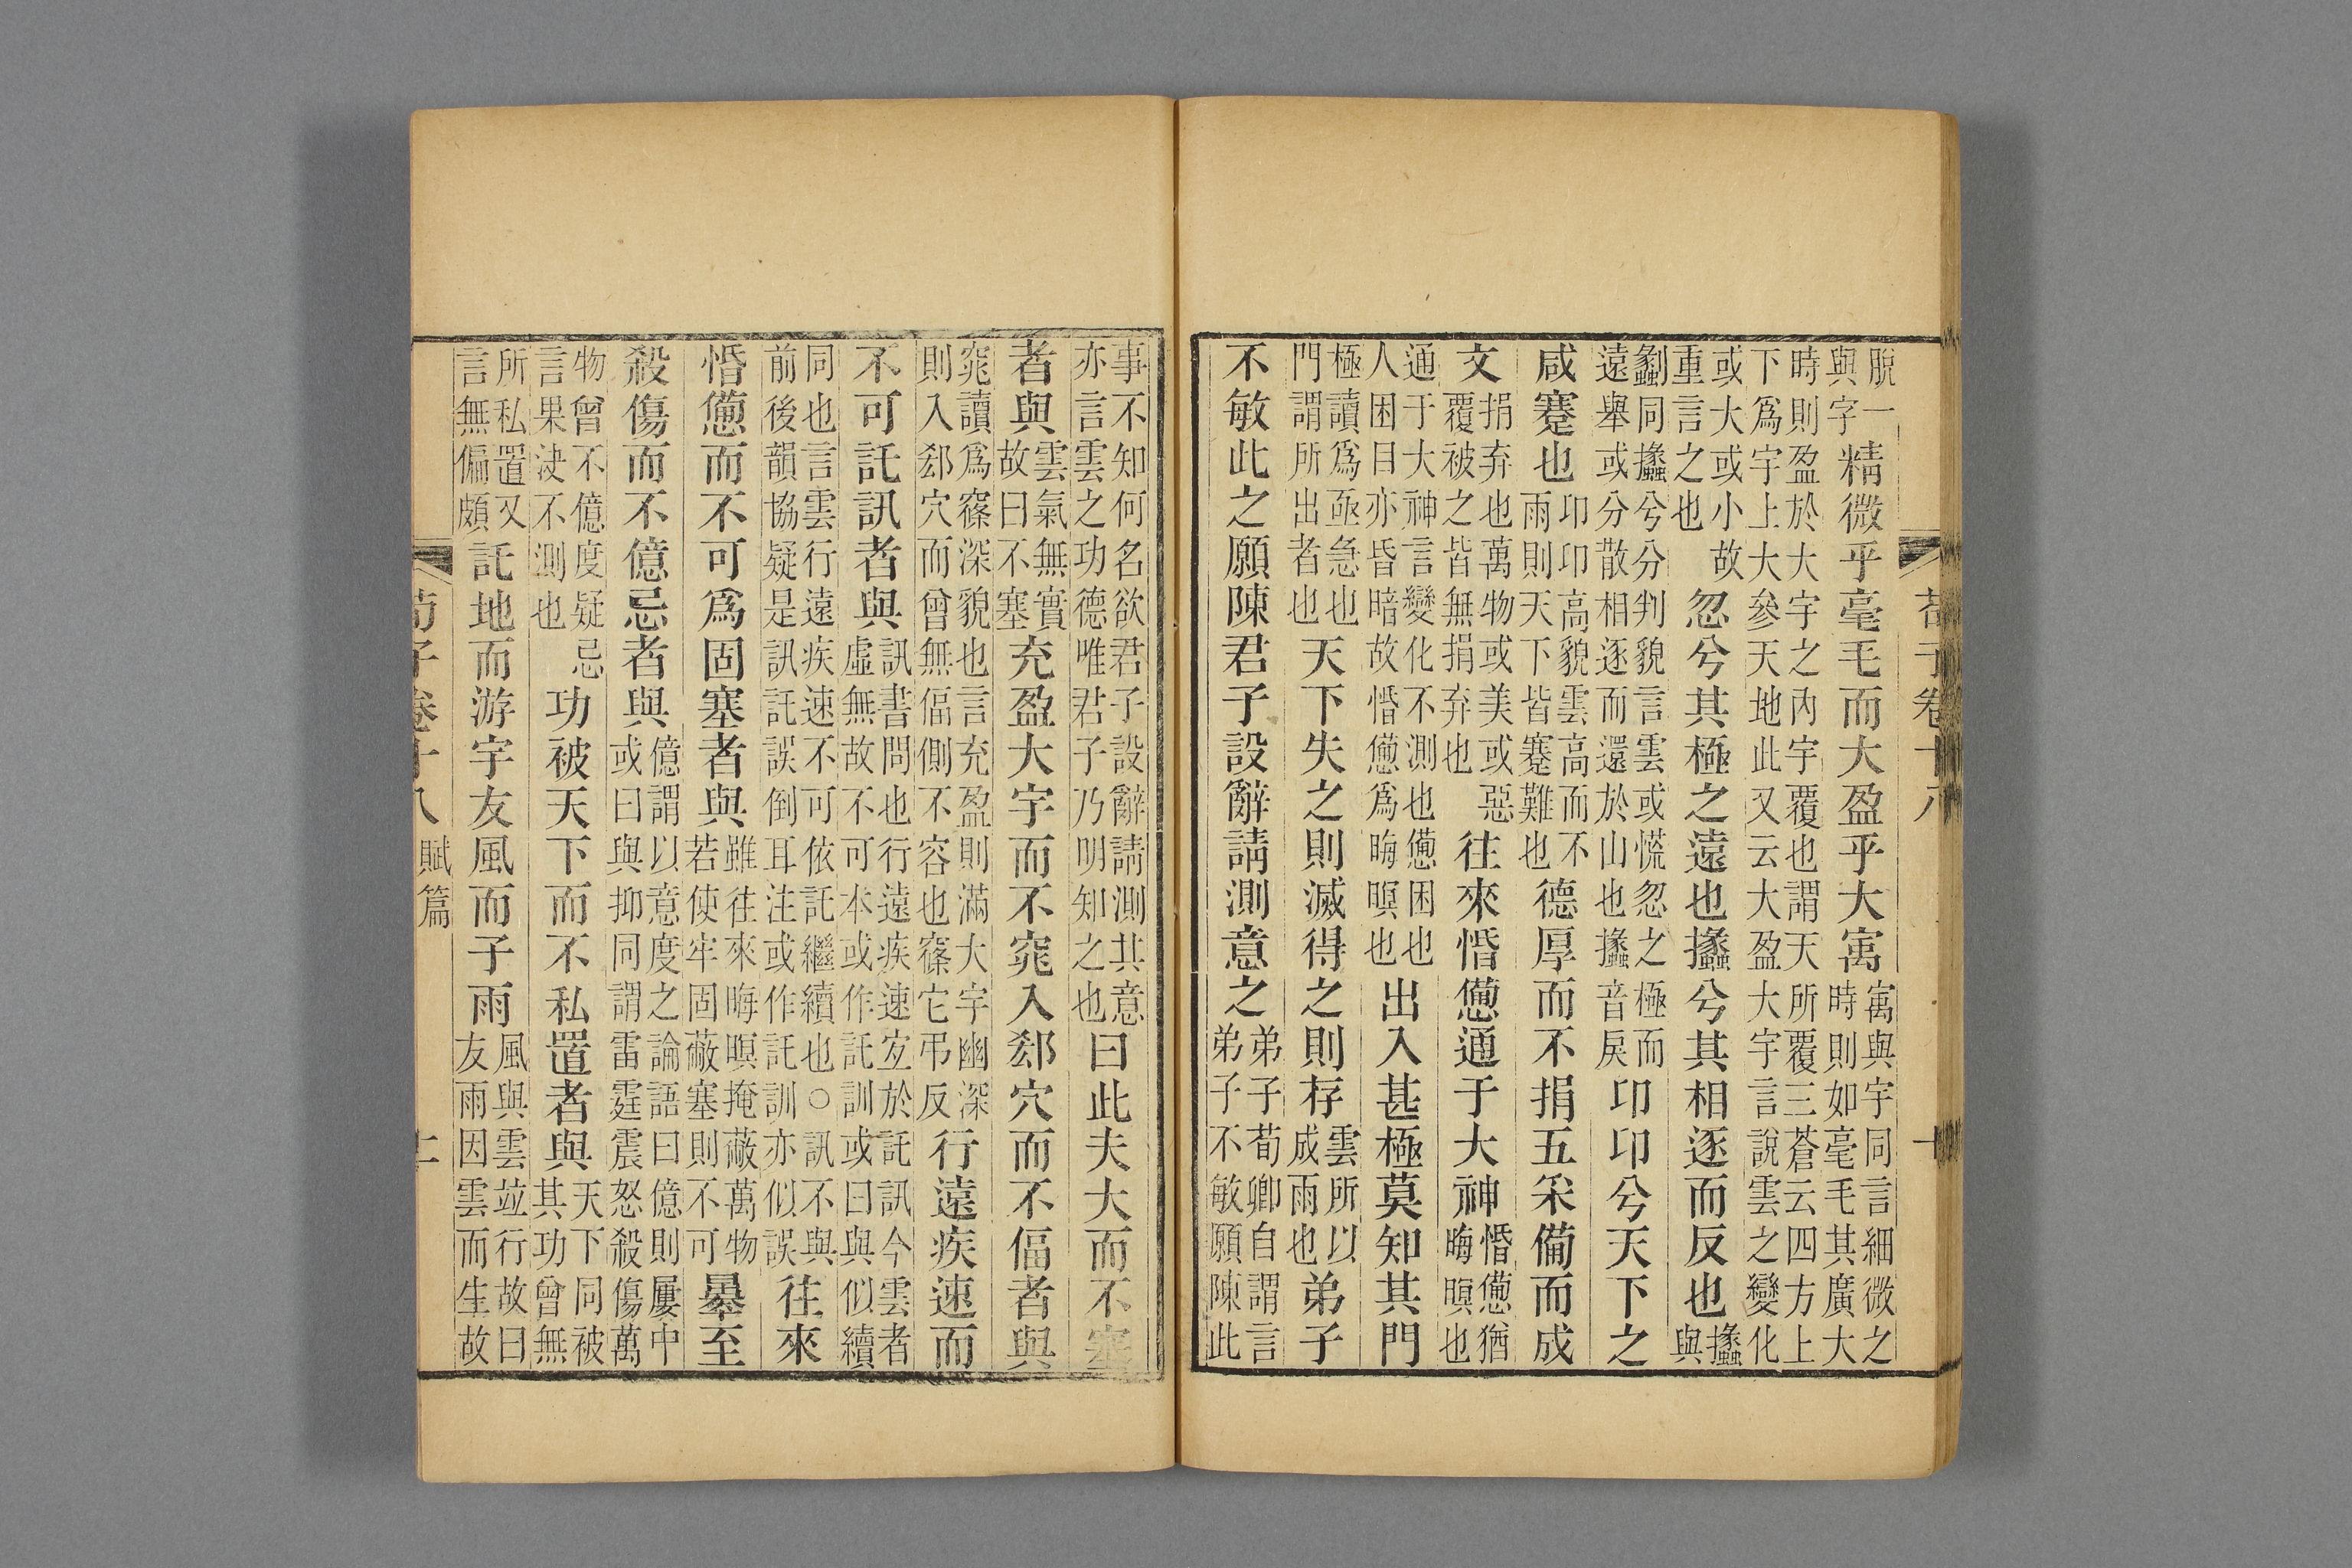 荀子卷十八 十
脫一與字精微乎毫毛而大盈乎大㝢㝢與宇同言細微之時則如毫毛其廣大
時則盈於大宇之內宇覆也謂天所覆三蒼云四方上下爲宇上大參天地此又云大盈大宇言說雲之變化
或大或小故重言之也忽兮其極之遠也攭兮其相逐而反也攭與
劙同攭兮分判貌言雲或慌忽之極而遠舉或分散相逐而還於山也攭音戾卬卬兮天下之
咸蹇也卬卬高貌雲高而不雨則天下皆蹇難也德厚而不捐五采備而成
文捐弃也萬物或美或惡覆被之皆無捐弃也往來惛憊通于大神惛憊猶晦暝也
通于大神言變化不測也憊困也人困目亦昏暗故惛憊爲晦暝也出入甚極莫知其門
極讀爲亟急也門謂所出者也天下失之則滅得之則存雲所以成雨也弟子
不敏此之願陳君子設辭請測意之弟子荀卿自謂言弟子不敏願陳此
事不知何名欲君子設辭請測其意亦言雲之功德唯君子乃明知之也曰此夫大而不塞
者與雲氣無實故曰不塞充盈大宇而不窕入郄穴而不偪者與
窕讀爲窱深貌也言充盈則滿大宇幽深則入郄穴而曾無偪側不容也窱它弔反行遠疾速而
不可託訊者與訊書問也行遠疾速宜於託訊今雲者虛無故不可本或作託訓或曰與似續
同也言雲行遠疾速不可依託繼續也○訊不與前後韻協疑是訊託誤倒耳注或作託訓亦似誤往來
惛憊而不可爲固塞者與雖往來晦暝掩蔽萬物若使牢固蔽塞則不可暴至
殺傷而不億忌者與億謂以意度之論語曰億則屢中或曰與抑同謂雷霆震怒殺傷萬
物曾不億度疑忌言果決不測也功被天下而不私置者與天下同被其功曾無
所私置又言無偏頗託地而游宇友風而子雨風與雲竝行故曰友雨因雲而生故
荀子卷十八 賦篇